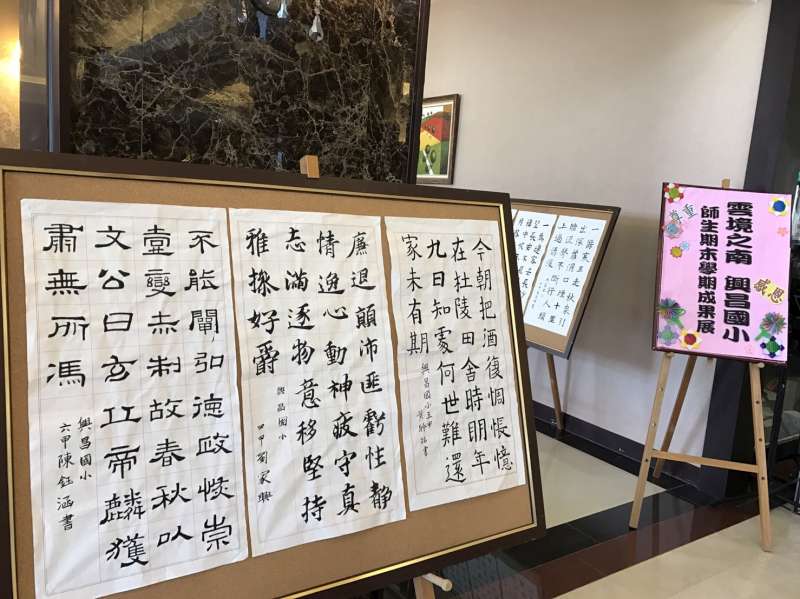 今朝把酒復惆悵憶
在杜陵田舍時明年
九日知處何世難還
家未有期
興昌國小五甲
書
廉退顛沛匪虧性靜
情逸心動神疲守真
志滿逐物意移堅持
雅操好爵
興昌國小
四甲劉家興
不能闡弘德政恢崇
壹變赤制故春秋以
文公曰玄丘帝麟獲
肅無所馮
興昌國小
六甲陳鈺涵書
尊重
雲境之南 興昌國小
師生期末學期成果展
感恩